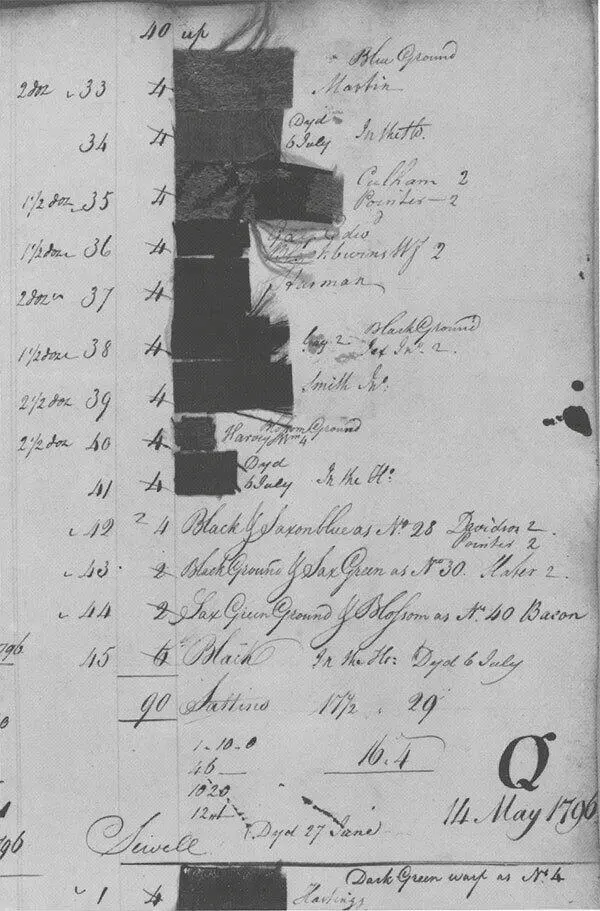 40 up
Blue Ground
2 doz 33 4 Martin
34 4 Dyd 6 July In the Ho.
1 1/2 doz 35 4 Culham 2
Pointer — 2
1 1/2 doz 36 4 2
2 doz 37 4 Harman
Black Ground
1 1/2 doz 38 4 Gay 2 Jno. 2
2 1/2 doz 39 4 Smith Jno.
2 1/2 doz 40 4 Harvey Wm 4 Blossom Ground
41 4 Dyd 6 July In the Ho.
42 2 4 Black & Saxonblue as No. 28 Davidson 2
Pointer 2
43 2 Black Ground & Sax Green as No. 30. Slater 2
44 2 Sax Green Ground & Blossom as No. 40 Bacon
45 6 Black In the Ho: Dyd 6 July
90 Sattins 17 1/2 29
1-10-0 16.4
46
1020
12
Q
14 May 1796
Sewell Dyd 27 June
796
796
Dark Green warp as No. 4
1 4 Hastings